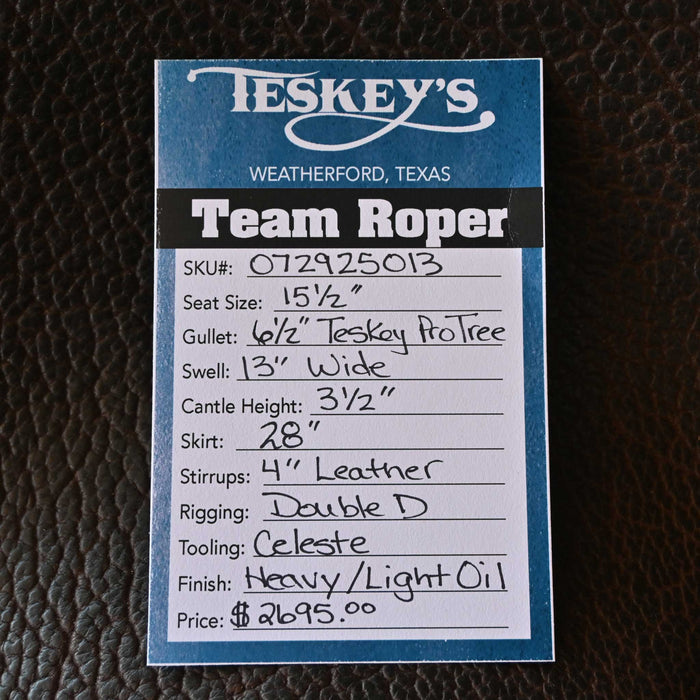 TESKEY'S
WEATHERFORD, TEXAS
Team Roper
SKU#: 072925013
Seat Size: 15 1/2"
Gullet: 6 1/2" Teskey ProTree
Swell: 13" Wide
Cantle Height: 3 1/2"
Skirt: 28"
Stirrups: 4" Leather
Rigging: Double D
Tooling: Celeste
Finish: Heavy/Light Oil
Price: $2695.00